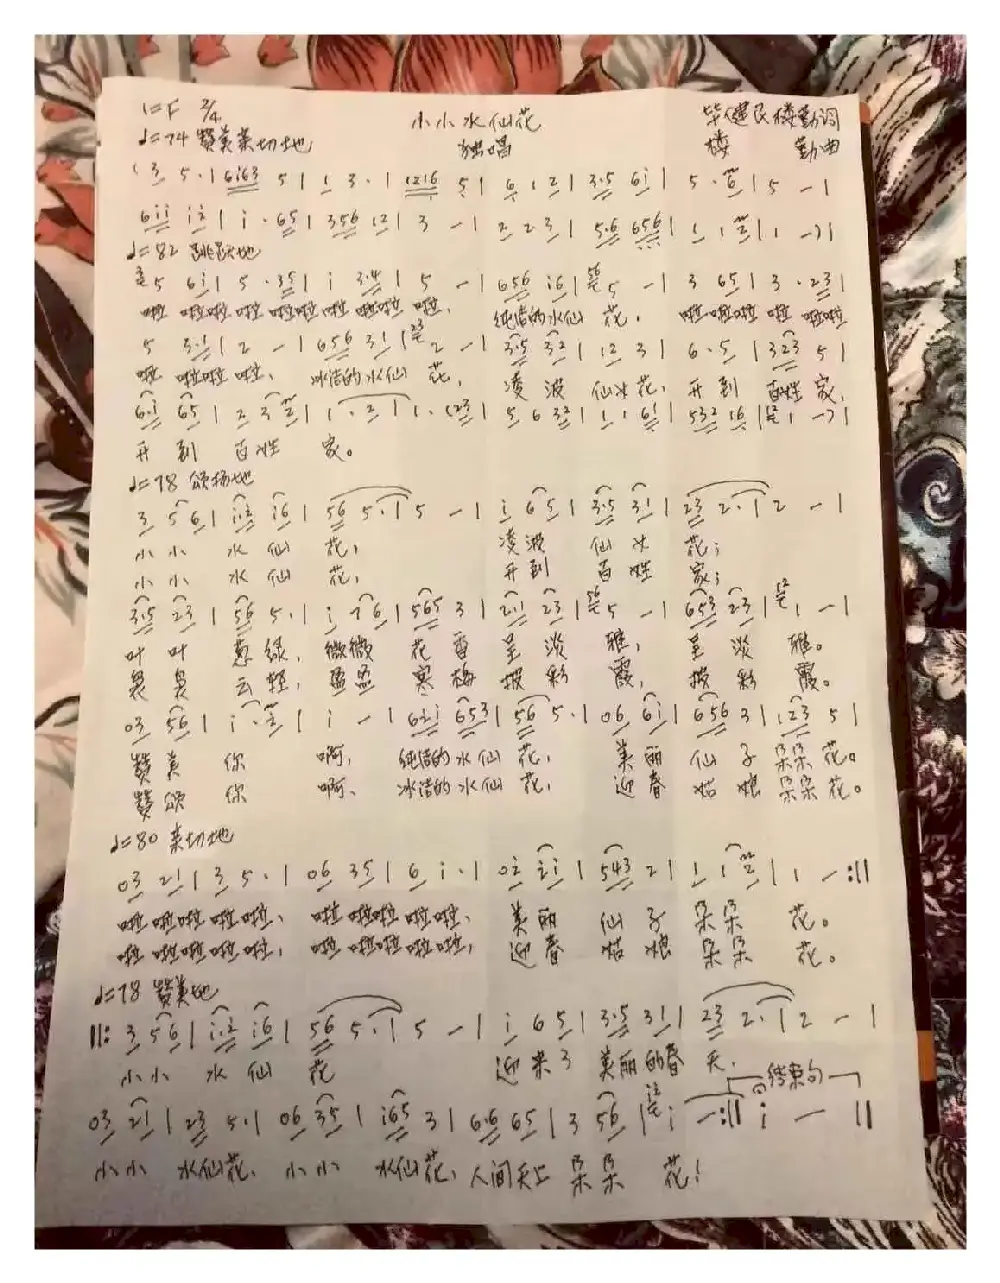 1=F 2/4 小小水仙花 毕健民楼勤词
♩=74 赞美亲切地 独唱 楼 勤曲
3 5·| 6i63 5 | 1 3·| 1216 5 | 6 1 2 | 3·5 6i | 5 · 6 | 5 - |
6ii i2 | i · 65 | 356 12 | 3 - | 2 2 3 | 5·6 656 | 1 1 2 | 1 - |
♩=82 跳跃地
5 6i | 5 · 35 | i 3·4 | 5 - | 656 i6 | 5 - | 3 65 | 3 · 23 |
啦 啦啦 啦 啦啦 啦 啦啦 啦, 纯洁的水仙 花。 啦 啦啦 啦 啦啦
5 3·1 | 2 - | 656 31 | 2 - | 3·5 32 | 12 3 | 6·5 | 323 5 |
啦 啦啦 啦, 冰洁的水仙 花, 凌波 仙水花, 开到 百姓 家,
6·i 65 | 2 3 | 1 · 2 | 1 · 123 | 5 6 32 | 1 1 6i | 532 16 | 1 - |
开到 百姓 家。
♩=78 颂扬地
3 5 6 | i·2 i6 | 56 5·1 | 5 - | i 6 5 | 3·5 31 | 23 2·1 | 2 - |
小小 水仙 花, 凌波 仙水 花;
小小 水仙 花, 开到 百姓 家;
3·5 23 | 56 5· | i 76 | 565 3 | 2·1 23 | 5 - | 653 23 | 1 - |
叶叶 葱绿, 微微 花香 呈淡 雅, 呈淡 雅。
袅袅 云轻, 盈盈 寒梅 披彩 霞, 披彩 霞。
03 56 | i · 2 | i - | 62i 653 | 56 5· | 06 6i | 656 3 | 123 5 |
赞美 你 啊, 纯洁的水仙 花, 美丽 仙子 朵朵 花。
赞颂 你 啊, 冰洁的水仙 花, 迎春 姑娘 朵朵 花。
♩=80 亲切地
03 21 | 3 5· | 06 35 | 6 i· | 02 2i | 543 2 | 1 1 2 | 1 - :||
啦啦啦 啦啦, 啦啦啦 啦啦, 美丽 仙子 朵朵 花。
啦啦啦 啦啦, 啦啦啦 啦啦, 迎春 姑娘 朵朵 花。
♩=78 赞美地
||: 3 56 | i·2 i6 | 56 5·1 | 5 - | i 6 5 | 3·5 31 | 23 2·1 | 2 - |
小小 水仙 花 迎来了 美丽的春 天。 结束句
03 21 | 23 5· | 06 35 | i65 3 | 6·6 65 | 3 56 | i - :|| i - ||
小小 水仙花, 小小 水仙花, 人间天上 朵朵 花!